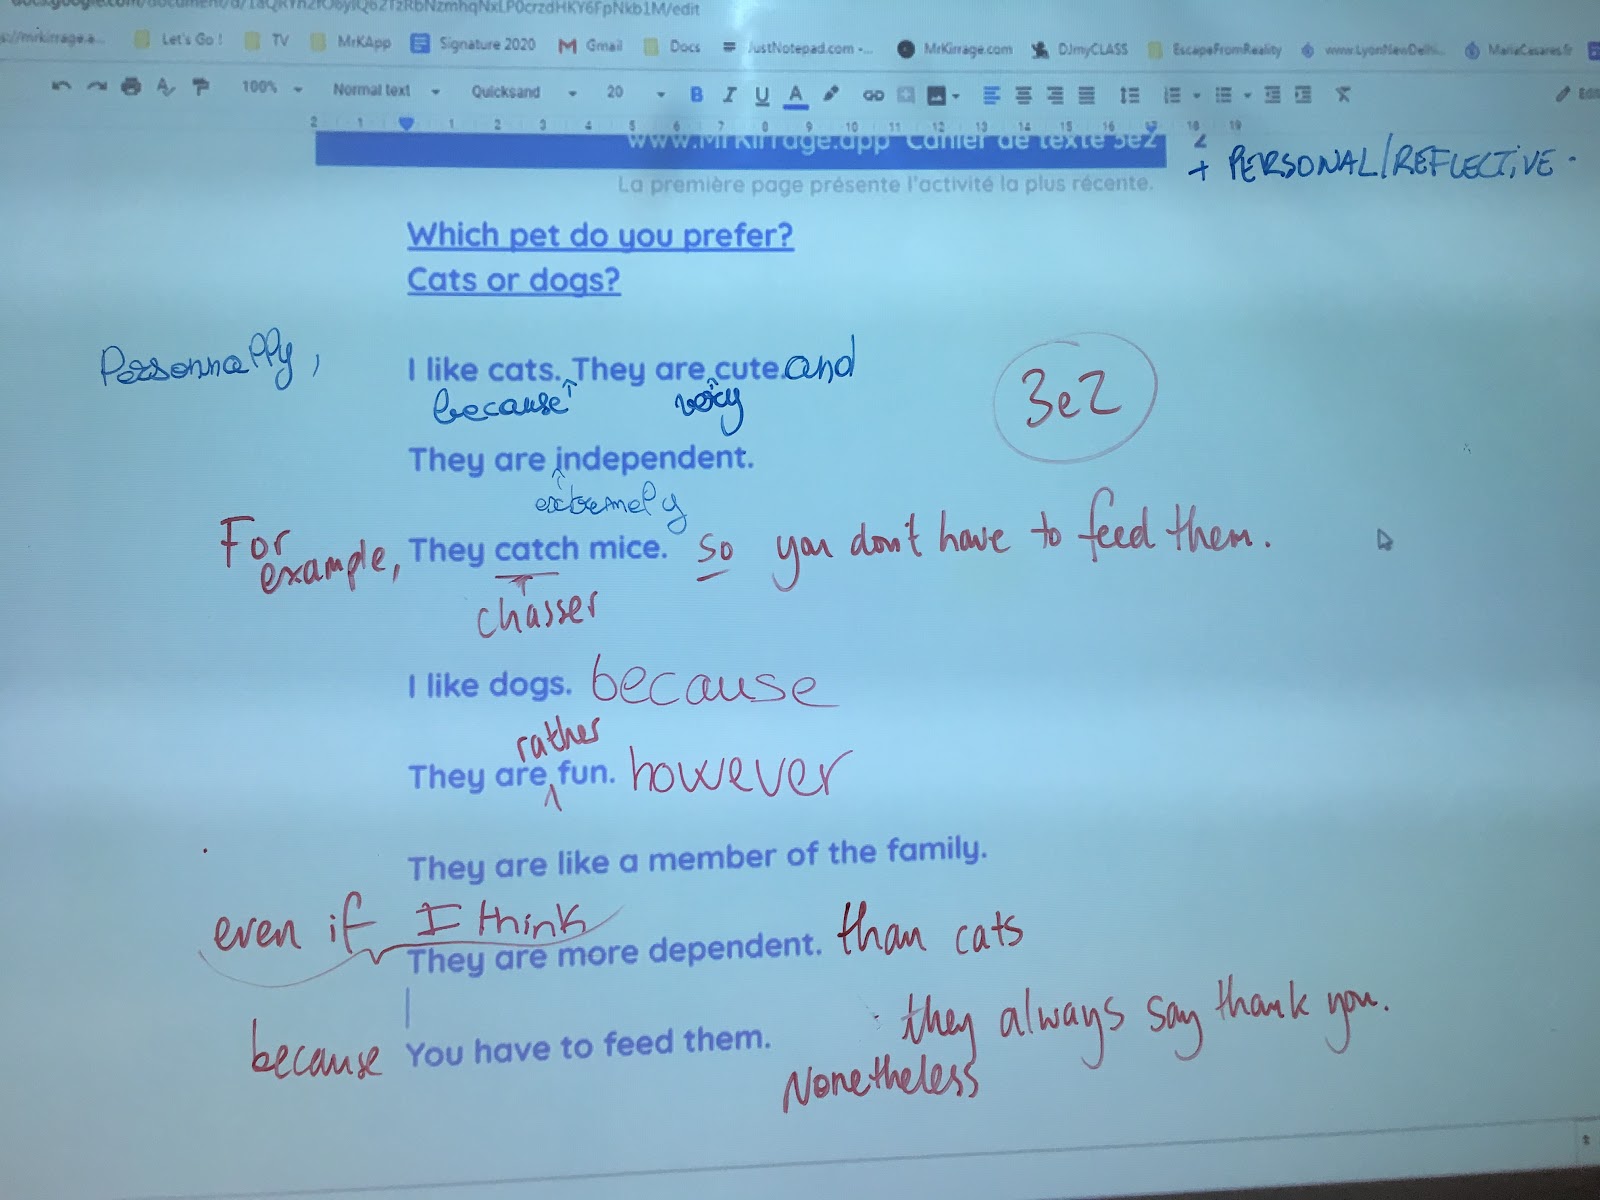 docs.google.com/document/d/
Let's Go! TV MrKApp Signature 2020 Gmail Docs JustNotepad.com -... MrKirrage.com DJmyCLASS EscapeFromReality www.LyonNewDelhi... MariaCasares.fr
100% Normal text Quicksand 20 B I U A
2 1 1 2 3 4 5 6 7 8 9 10 11 12 13 14 15 16 17 18 19
www.MrKirrage.app Cahier de texte 3e2
+ PERSONAL/REFLECTIVE.
La première page présente l'activité la plus récente.
Which pet do you prefer?
Cats or dogs?
Personnally, I like cats. They are cute. and
because very
3e2
They are independent.
extremely
For example, They catch mice. so you don't have to feed them.
chasser
I like dogs. because
rather
They are fun. however
They are like a member of the family.
even if I think
They are more dependent. than cats
they always say thank you.
because You have to feed them.
Nonetheless